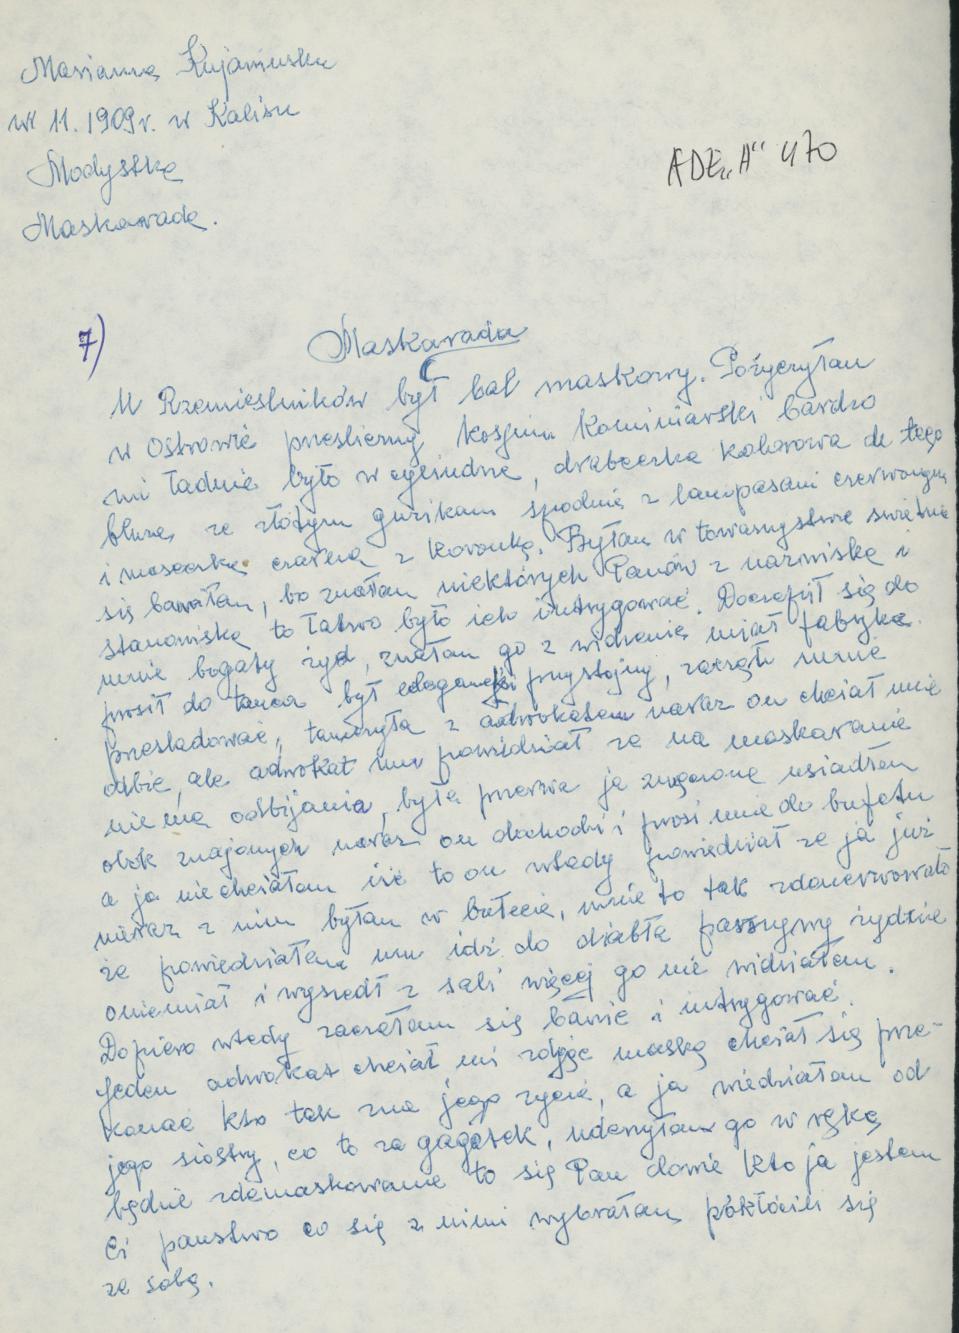 Marianna Kujawska
ur 11. 1909 r. w Kalisu
Modystką
Maskarada.
ADE „A" 470
7)
Maskarada
U Rzemieslników był bal maskowy. Pożyczyłam
w Ostrowie przesliczny kostjum Kominiarski bardzo
mi ładnie było w cylindrze, drabceczka kolorowa do tego
bluza ze złotym guzikam spodnie z lampasami czerwonym
i maseczka czarna z koronką. Byłam w towarzystwie świetnie
się bawiłam, bo znałam niektórych Panów z nazwiska i
stanowiska to łatwo było ich intrygować. Doczepił się do
mnie bogaty żyd, znałam go z widzenia miał fabryka.
prosił do tańca był elegancki przystojny, zaczął mnie
presladować, tańczyła z adwokatem naraz on chciał mnie
odbić, ale adwokat mu powiedział ze na maskaradzie
nie ma odbijania, była przerwa ja zmęczona usiadłam
obok znajomych naraz on dochodzi i prosi mnie do bufetu
a ja nie chciałam iść to on wtedy powiedział ze ja już
nieraz z nim byłam w bufecie, mnie to tak zdenerwowało
że powiedziałam mu idź do diabła parszywy żydzie
oniemiał i wyszedł z sali więcej go nie widziałam.
Dopiero wtedy zaczełam się bawić i intrygować.
Jeden adwokat chciał mi zdjąć maską chciał się prze-
konać kto tak zna jego życie, a ja wiedziałam od
jego siostry, co to za gagatek, uderzyłam go w ręką
będzie zdemaskowanie to się Pan dowie kto ja jestem
Ci panstwo co się z nimi wybrałam pokłócili się
ze sobą.